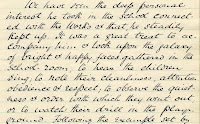 We have seen the deep personal
interest he took in the school connect
ed with the works & that he steadily
kept up. It was a great treat to ac-
company him & look upon the galaxy
of bright & happy faces gathered in the
school room, to hear the children
sing, to note their cleanliness, attention
obedience & respect, to observe the quiet-
ness & order with which they went out
or to watch their drill in the play
ground following the example set by